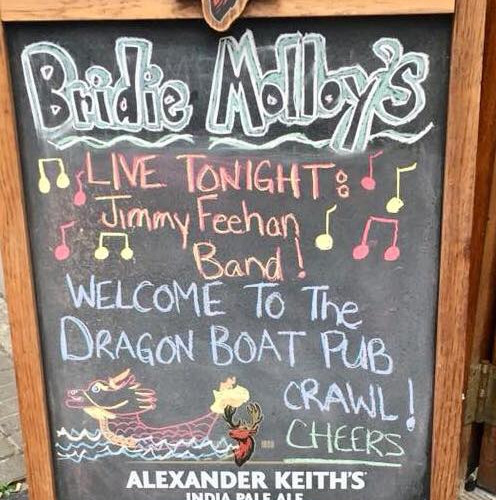 Bridie Molloy's
LIVE TONIGHT:
Jimmy Feehan
Band!
WELCOME TO The
DRAGON BOAT PUB
CRAWL!
CHEERS
ALEXANDER KEITH'S
INDIA PALE ALE